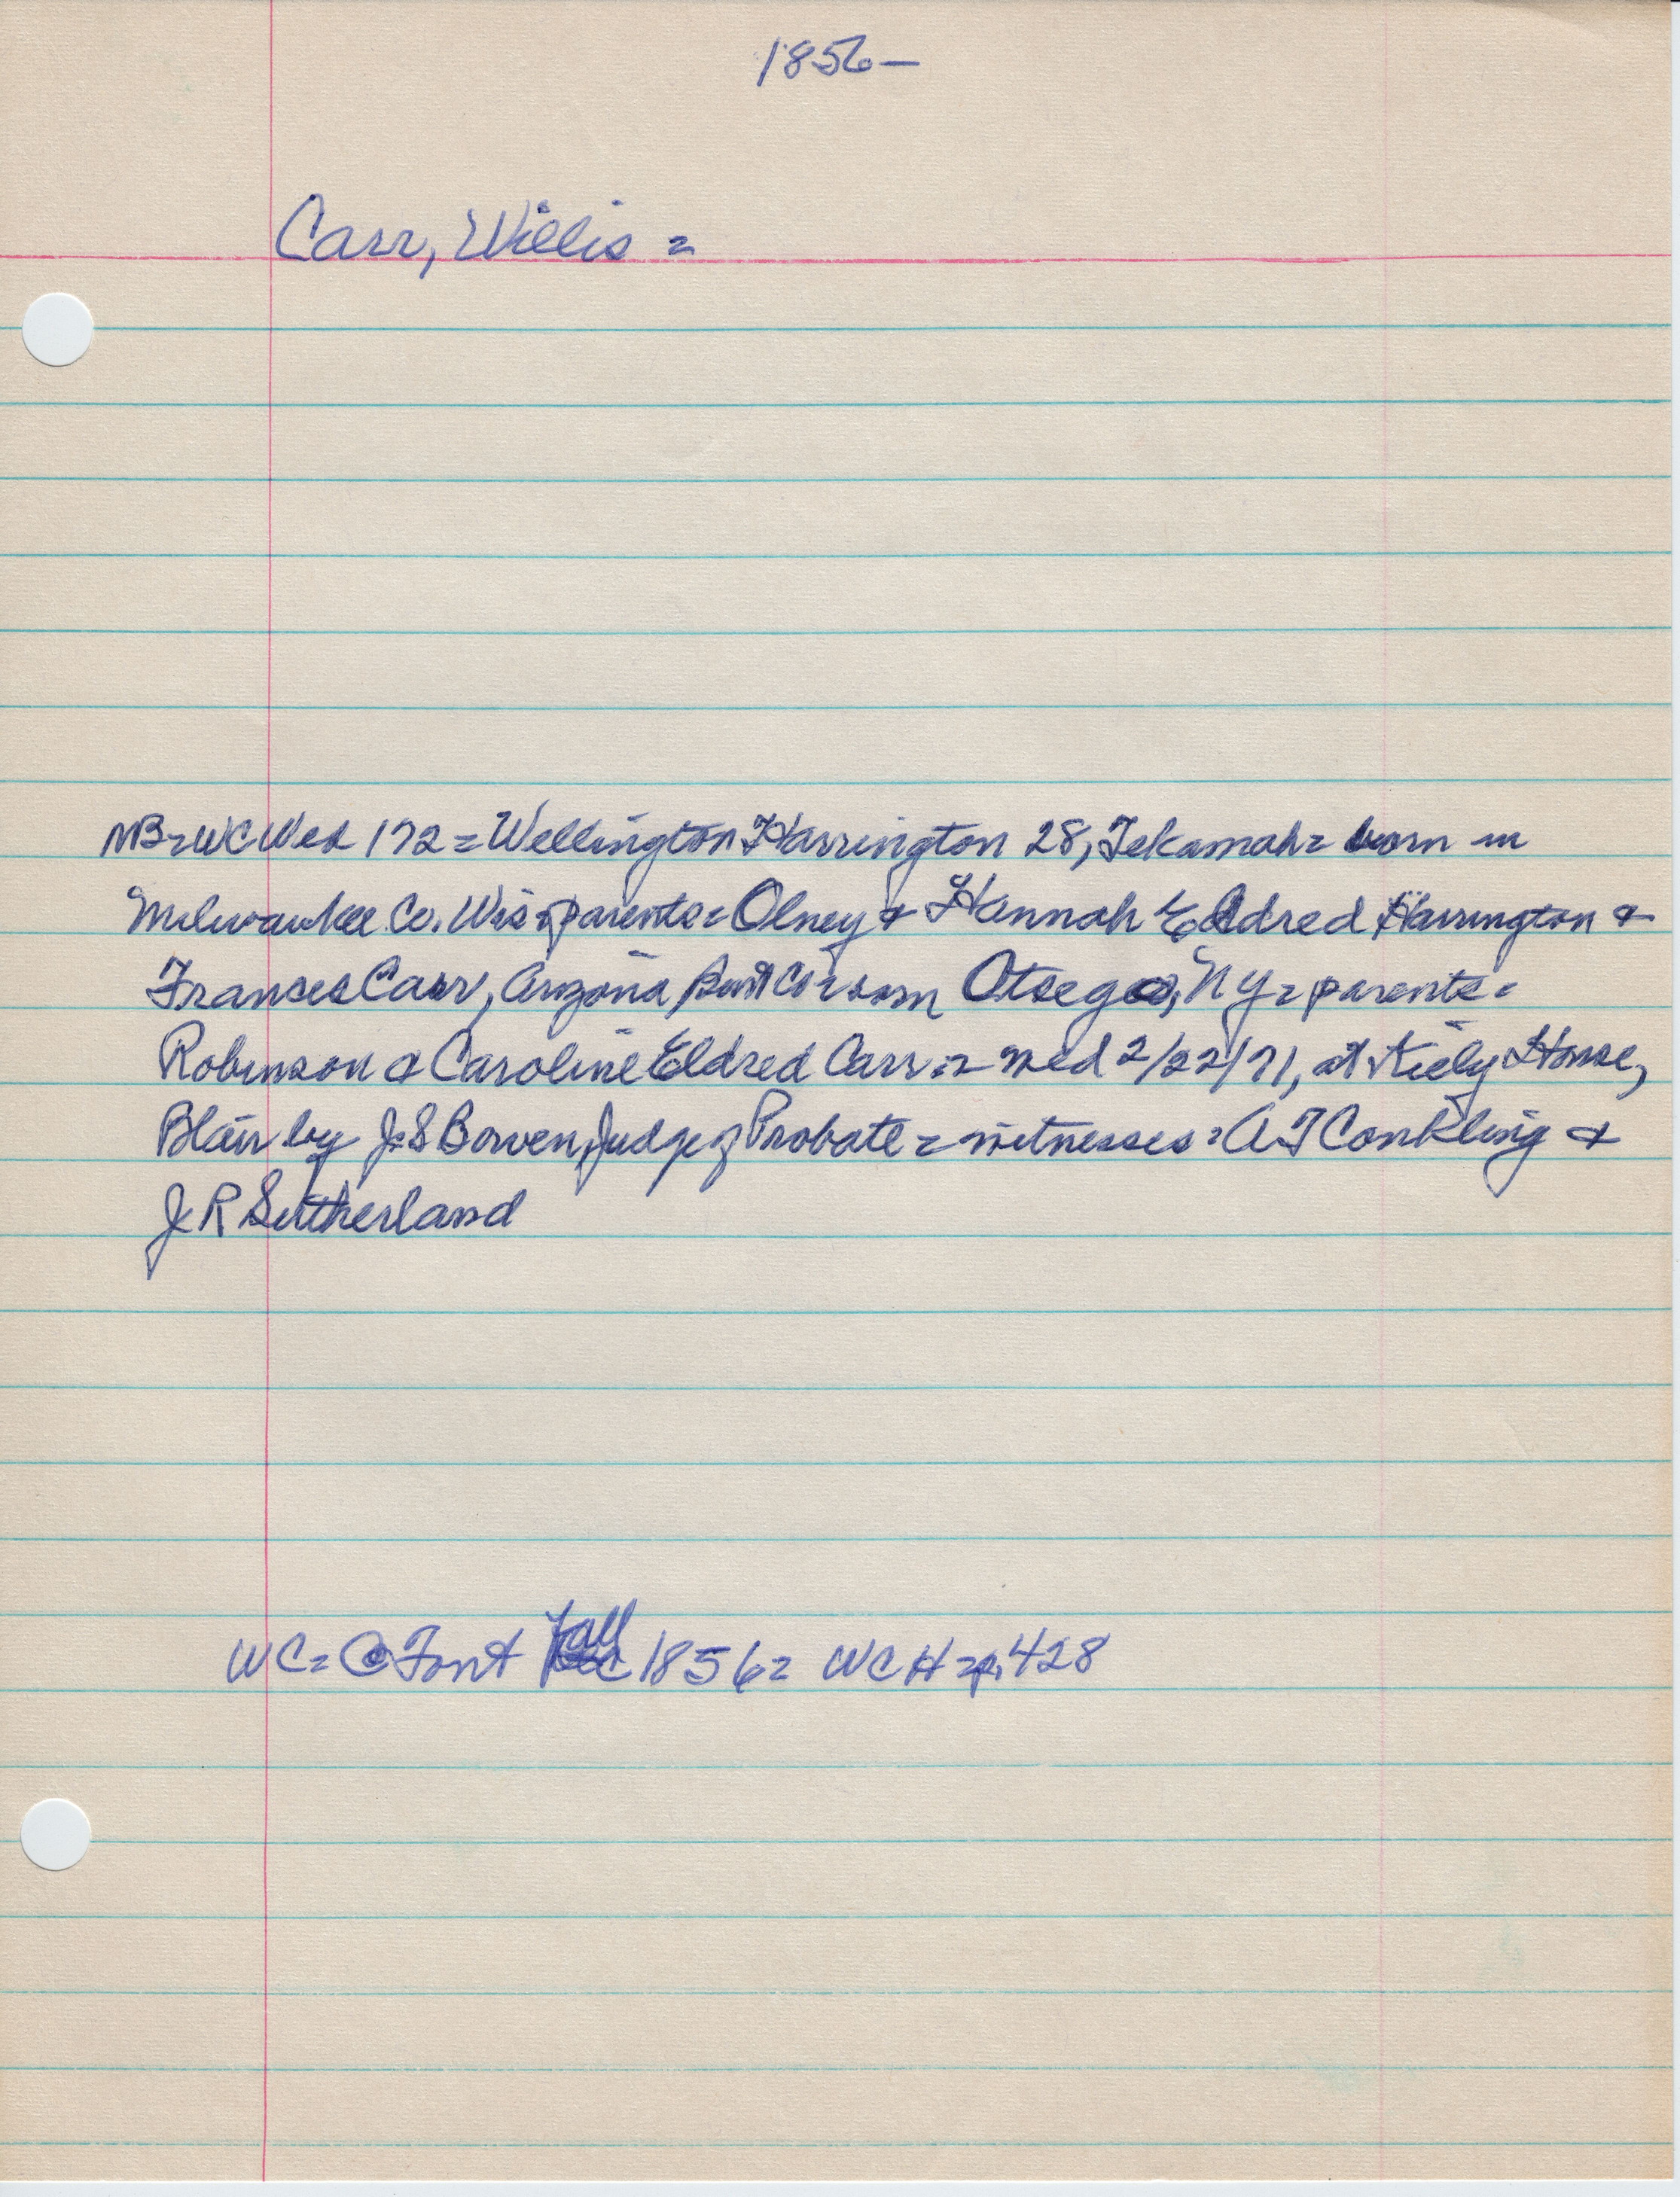 1856—
Carr, Willis =
NB=WC Wed 172 = Wellington Harrington 28, Tekamah = born in
Milwaukee Co. Wis = parents = Olney & Hannah Eldred Harrington &
Frances Carr, Arizona Burt Co = born Otsego, NY = parents =
Robinson & Caroline Eldred Carr = wed 2/22/71, at House,
Blair by J.S Bowen, Judge of Probate = witnesses = A T Conkling &
J R Sutherland
WC = @ Font Fall 1856 = WCH = p. 428